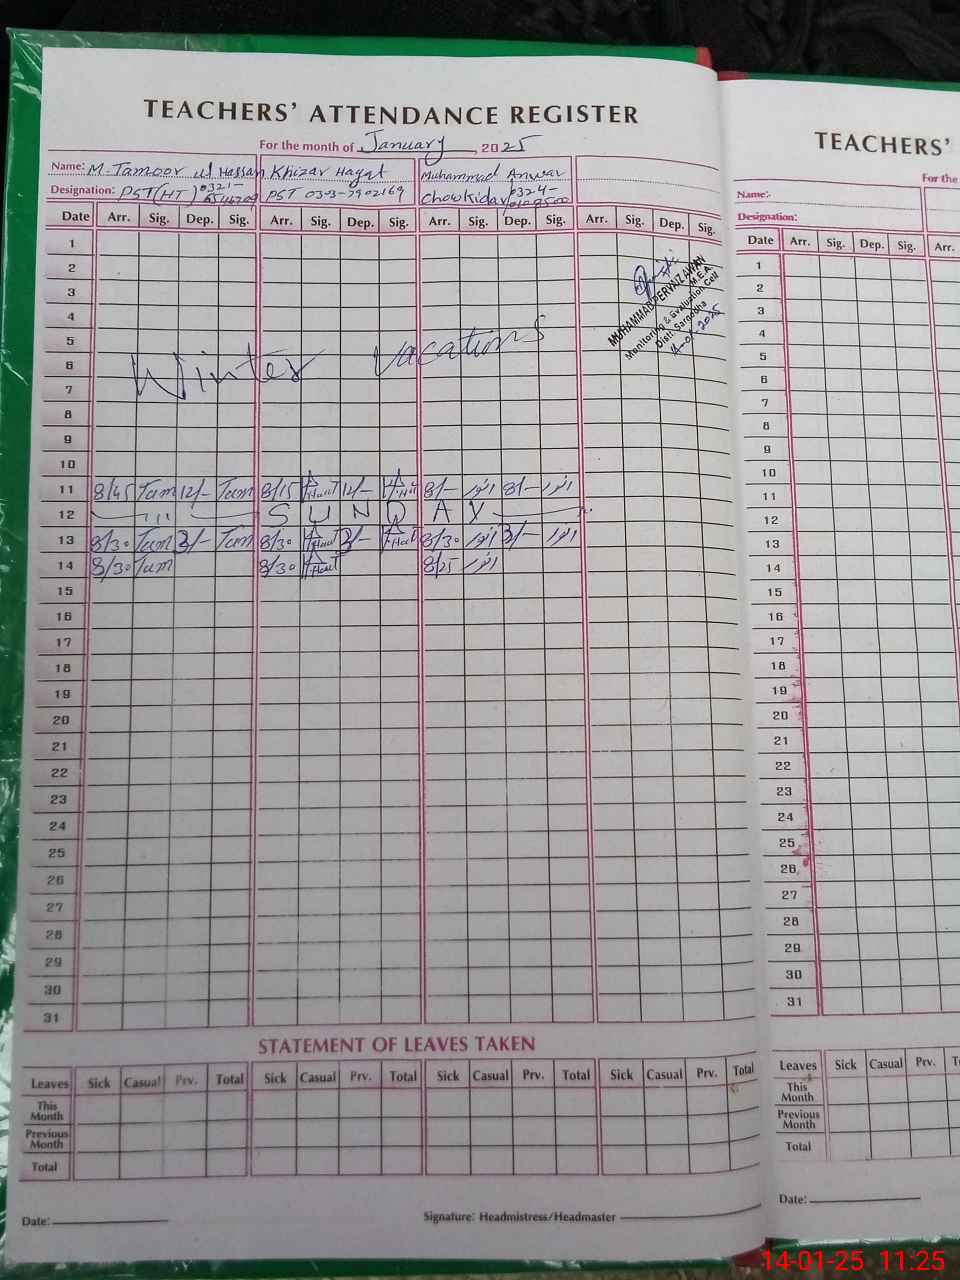 TEACHERS' ATTENDANCE REGISTER
For the month of January, 2025
Name: M. Tamoor ul Hassan Khizar Hayat Muhammad Anwar
Designation: PST(HT) 0321- PST 0303-7902169 Chowkidar 0324-
Date Arr. Sig. Dep. Sig. Arr. Sig. Dep. Sig. Arr. Sig. Dep. Sig. Arr. Sig. Dep. Sig.
1
2
3
4
5
6
7
8
9
10
Winter Vacations
MUHAMMAD PERVAIZ AWAN
M.E.A.
Monitoring & Evaluation Cell
Distt: Sargodha
14-01-2025
11 8/45 Tam 12/- Tam 8/15 12/- 8/- انور 8/- انور
12 SUNDAY
13 8/30 Tam 2/- Tam 8/30 2/- 8/30 انور 3/- انور
14 8/30 Tam 8/30 8/25 انور
15
16
17
18
19
20
21
22
23
24
25
26
27
28
29
30
31
STATEMENT OF LEAVES TAKEN
Leaves Sick Casual Prv. Total Sick Casual Prv. Total Sick Casual Prv. Total Sick Casual Prv. Total
This Month
Previous Month
Total
Date:
Signature: Headmistress/Headmaster
TEACHERS'
For the
Name:
Designation:
Date Arr. Sig. Dep. Sig. Arr.
1
2
3
4
5
6
7
8
9
10
11
12
13
14
15
16
17
18
19
20
21
22
23
24
25
26
27
28
29
30
31
Leaves Sick Casual Prv.
This Month
Previous Month
Total
Date:
14-01-25 11:25